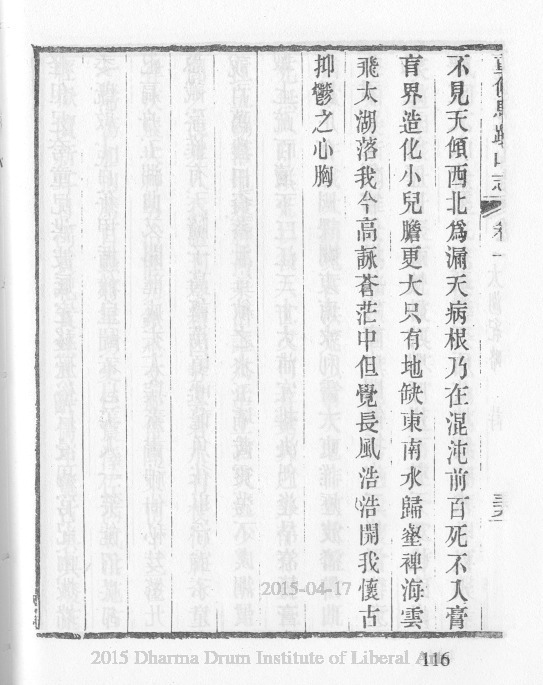 重修馬跡山志 卷一 三六
不見天傾西北爲漏天病根乃在混沌前百死不入膏
肓界造化小兒膽更大只有地缺東南水歸壑裨海雲
飛太湖落我今高詠蒼茫中但覺長風浩浩開我懷古
抑鬱之心胸
2015-04-17
2015 Dharma Drum Institute of Liberal Arts
116